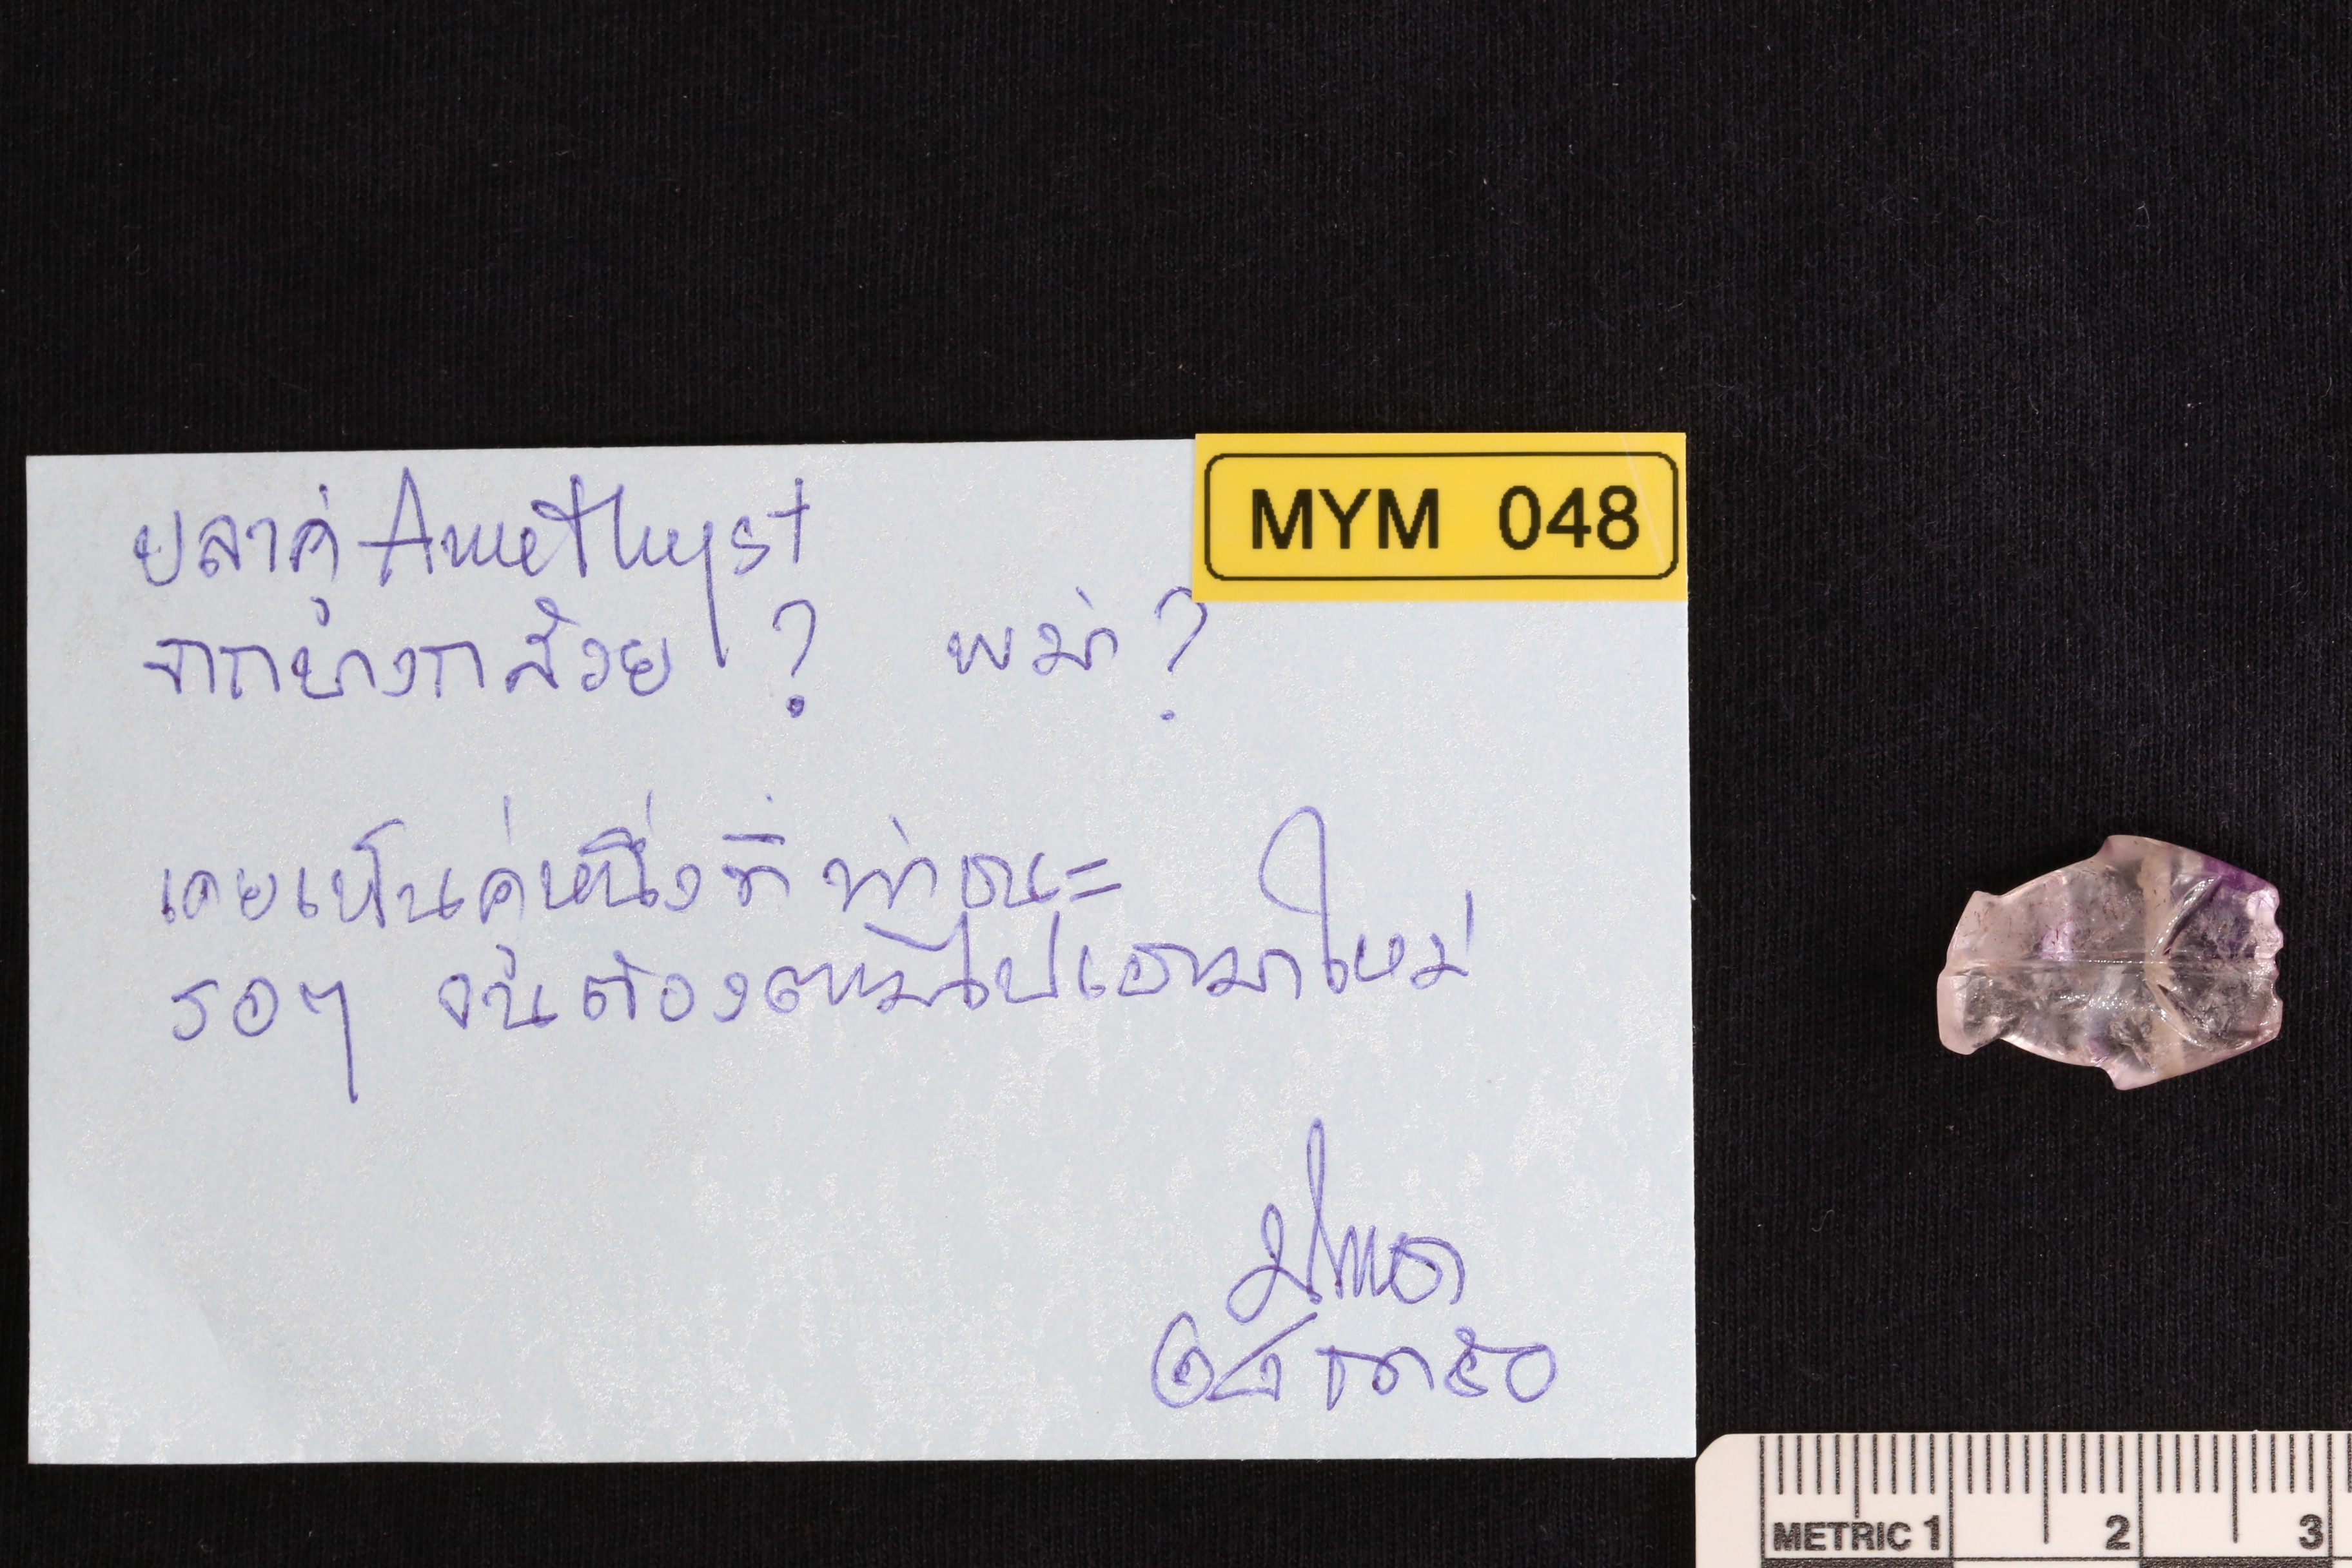 ปลาคู่ Amethyst
MYM 048
จากบางกล้วย ? พม่า ?
เคยเห็นคู่หนึ่งที่ ท่าชนะ
รอๆ จนต้องตามไปเอามาใหม่
๕๐
METRIC 1 2 3